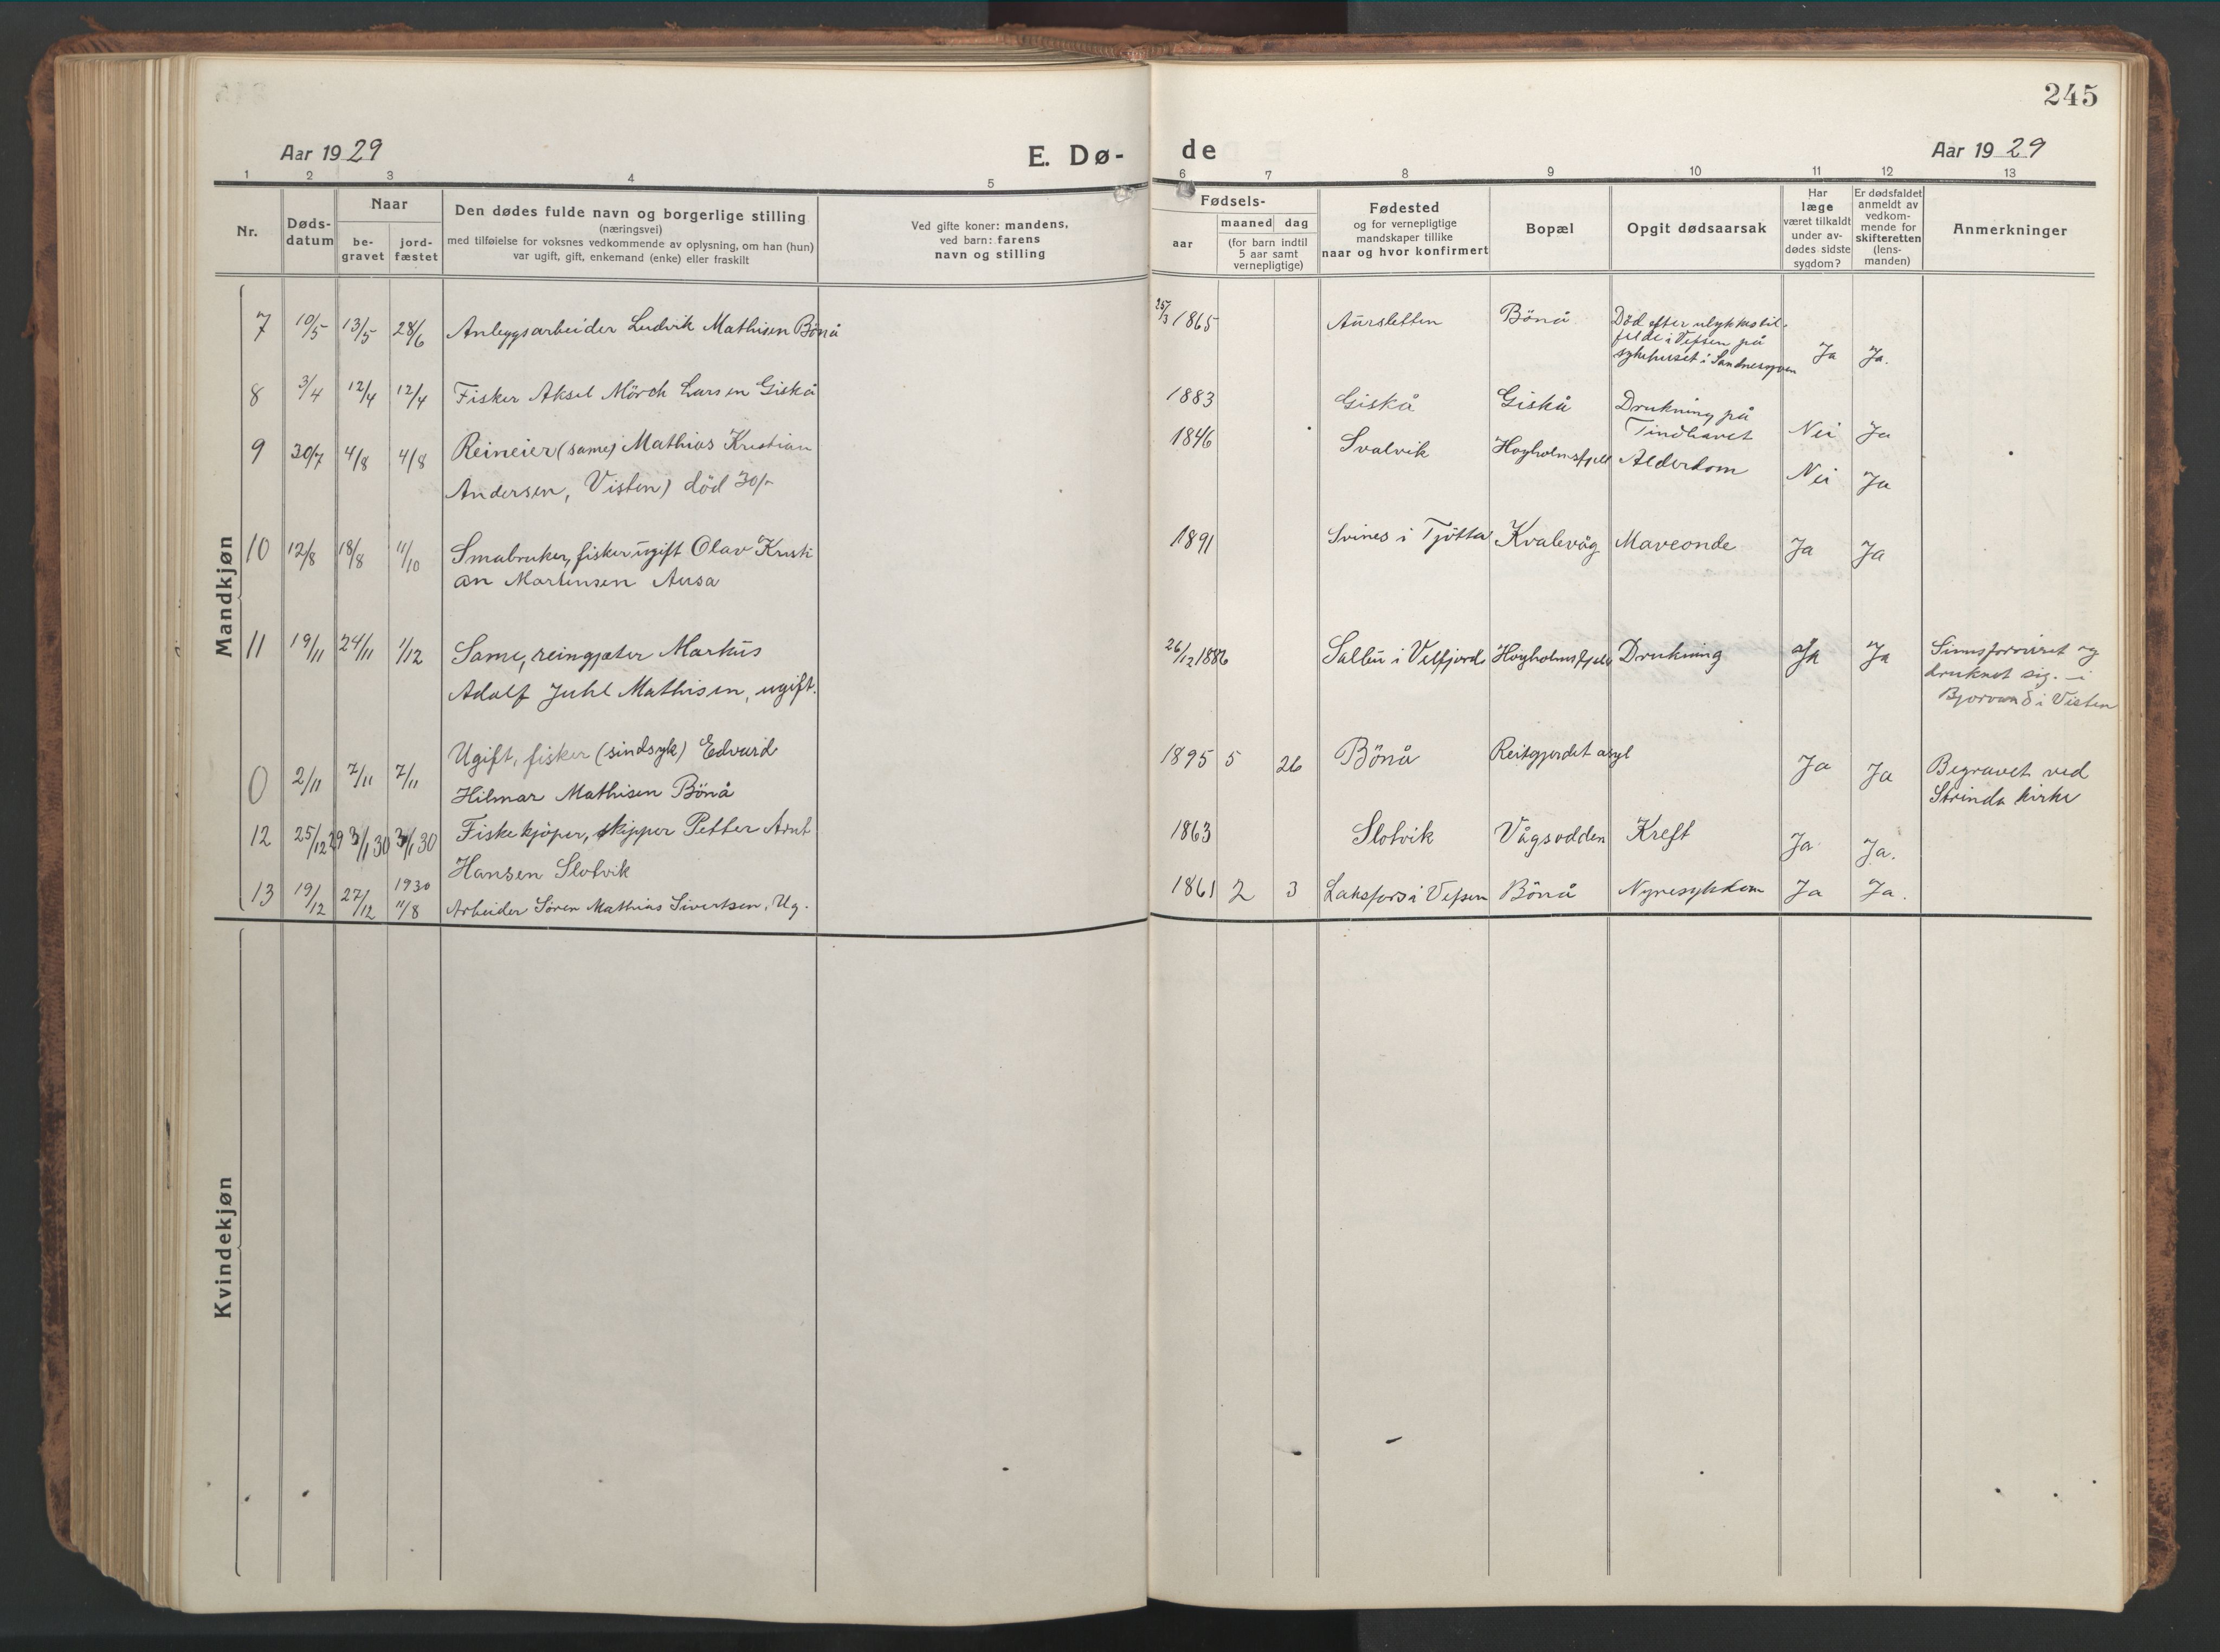 245
Aar 1929
E. Dø-
de
Aar 1929
1 2 3 4 5 6 7 8 9 10 11 12 13
Nr.
Døds-
datum
Naar
be-
gravet
jord-
fæstet
Den dødes fulde navn og borgerlige stilling
(næringsvei)
med tilføielse for voksnes vedkommende av oplysning, om han (hun)
var ugift, gift, enkemand (enke) eller fraskilt
Ved gifte koner: mandens,
ved barn: farens
navn og stilling
Fødsels-
aar
maaned dag
(for barn indtil
5 aar samt
vernepligtige)
Fødested
og for vernepligtige
mandskaper tillike
naar og hvor konfirmert
Bopæl
Opgit dødsaarsak
Har
læge
været tilkaldt
under av-
dødes sidste
sygdom?
Er dødsfaldet
anmeldt av
vedkom-
mende for
skifteretten
(lens-
manden)
Anmerkninger
Mandkjøn
7 10/5 13/5 28/6 Anleggsarbeider Ludvik Mathisen Bönå 25/3 1865 Aursletten Bönå Död efter ulykkestil-
felde i Vefsen på
sykehuset i Sandnessjøen Ja Ja.
8 3/4 12/4 12/4 Fisker Aksel Mörch Larsen Giskå 1883 Giskå Giskå Drukning på
Tindhavet Nei Ja
9 30/7 4/8 4/8 Reineier (same) Mathias Kristian
Andersen, Visten) död 30/- 1846 Svalvik Hoyholmsfjell Alderdom Nei Ja
10 12/8 18/8 11/10 Smabruker, fisker ugift Olav Kristi
an Martinsen Ausa 1891 Svines i Tjötta Kvalevåg Maveonde Ja Ja
11 19/11 24/11 1/12 Same, reingjæter Markus
Adolf Juhl Mathisen, ugift. 26/12 1886 Salbu i Velfjord Hoyholmsfjell Drukning Ja Ja Sinnsforvirret og
druknet sig. i
Bjorvand i Visten
0 2/11 7/11 7/11 Ugift, fisker (sindsyk) Edvard
Hilmar Mathisen Bönå 1895 5 26 Bönå Reitgjerdet asyl Ja Ja Begravet ved
Strinda kirke
12 25/12 29 3/1 30 3/1 30 Fiskekjöper, skipper Petter Arnt
Hansen Slotvik 1863 Slotvik Vågsodden Kreft Ja Ja.
13 19/12 27/12 1930
11/8 Arbeider Sören Mathias Sivertsen, Ug. 1861 2 3 Laksfors i Vefsen Bönå Nyresykdom Ja Ja.
Kvindekjøn